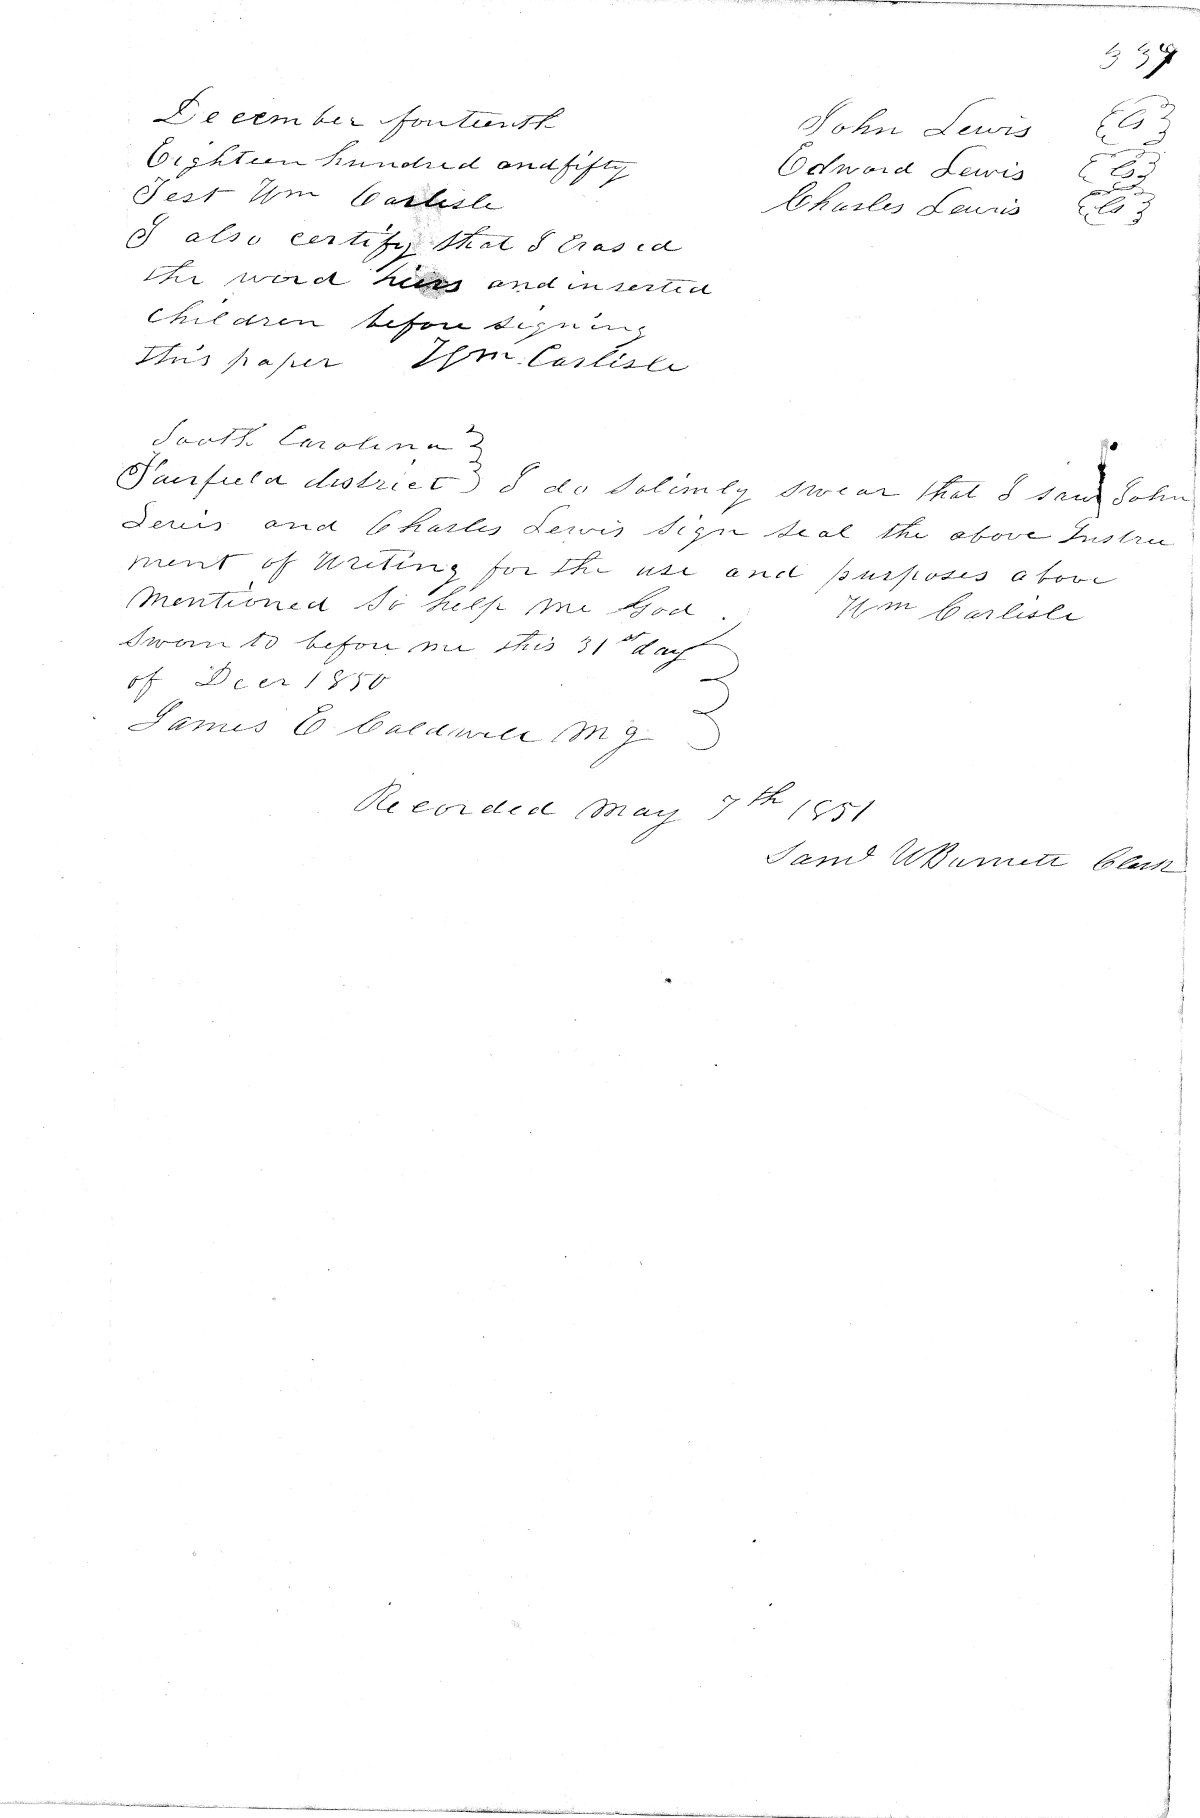 339
December fonteenth John Lewis {Ls}
Eighteen hundred and fifty Edward Lewis {Ls}
Test Wm Carlisle Charles Lewis {Ls}
I also certify that I Erased
the word hiers and inserted
children before signing
this paper Wm. Carlisle
South Carolina }
Fairfield district } I do solimly swear that I saw John
Lewis and Charles Lewis sign seal the above Instru
ment of Writing for the use and purposes above
Mentioned So help me God. Wm Carlisle
Sworn to before me this 31st day }
of Decr 1850 }
James E Caldwell M g }
Recorded May 7th 1851
Saml W Burnett Clerk